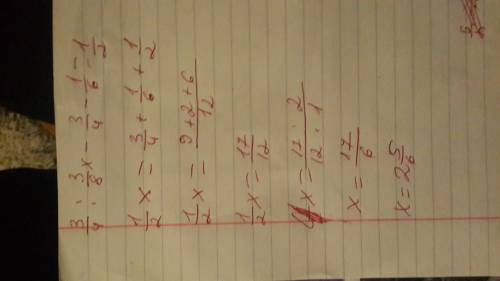 3/4 : 3/8 x - 3/4 - 1/6 - 1/2
1/2 x = 3/4 + 1/6 + 1/2
1/2 x = 9+2+6/12
1/2 x = 17/12
x = 17 · 2/12 · 1
x = 17/6
x = 2 5/6